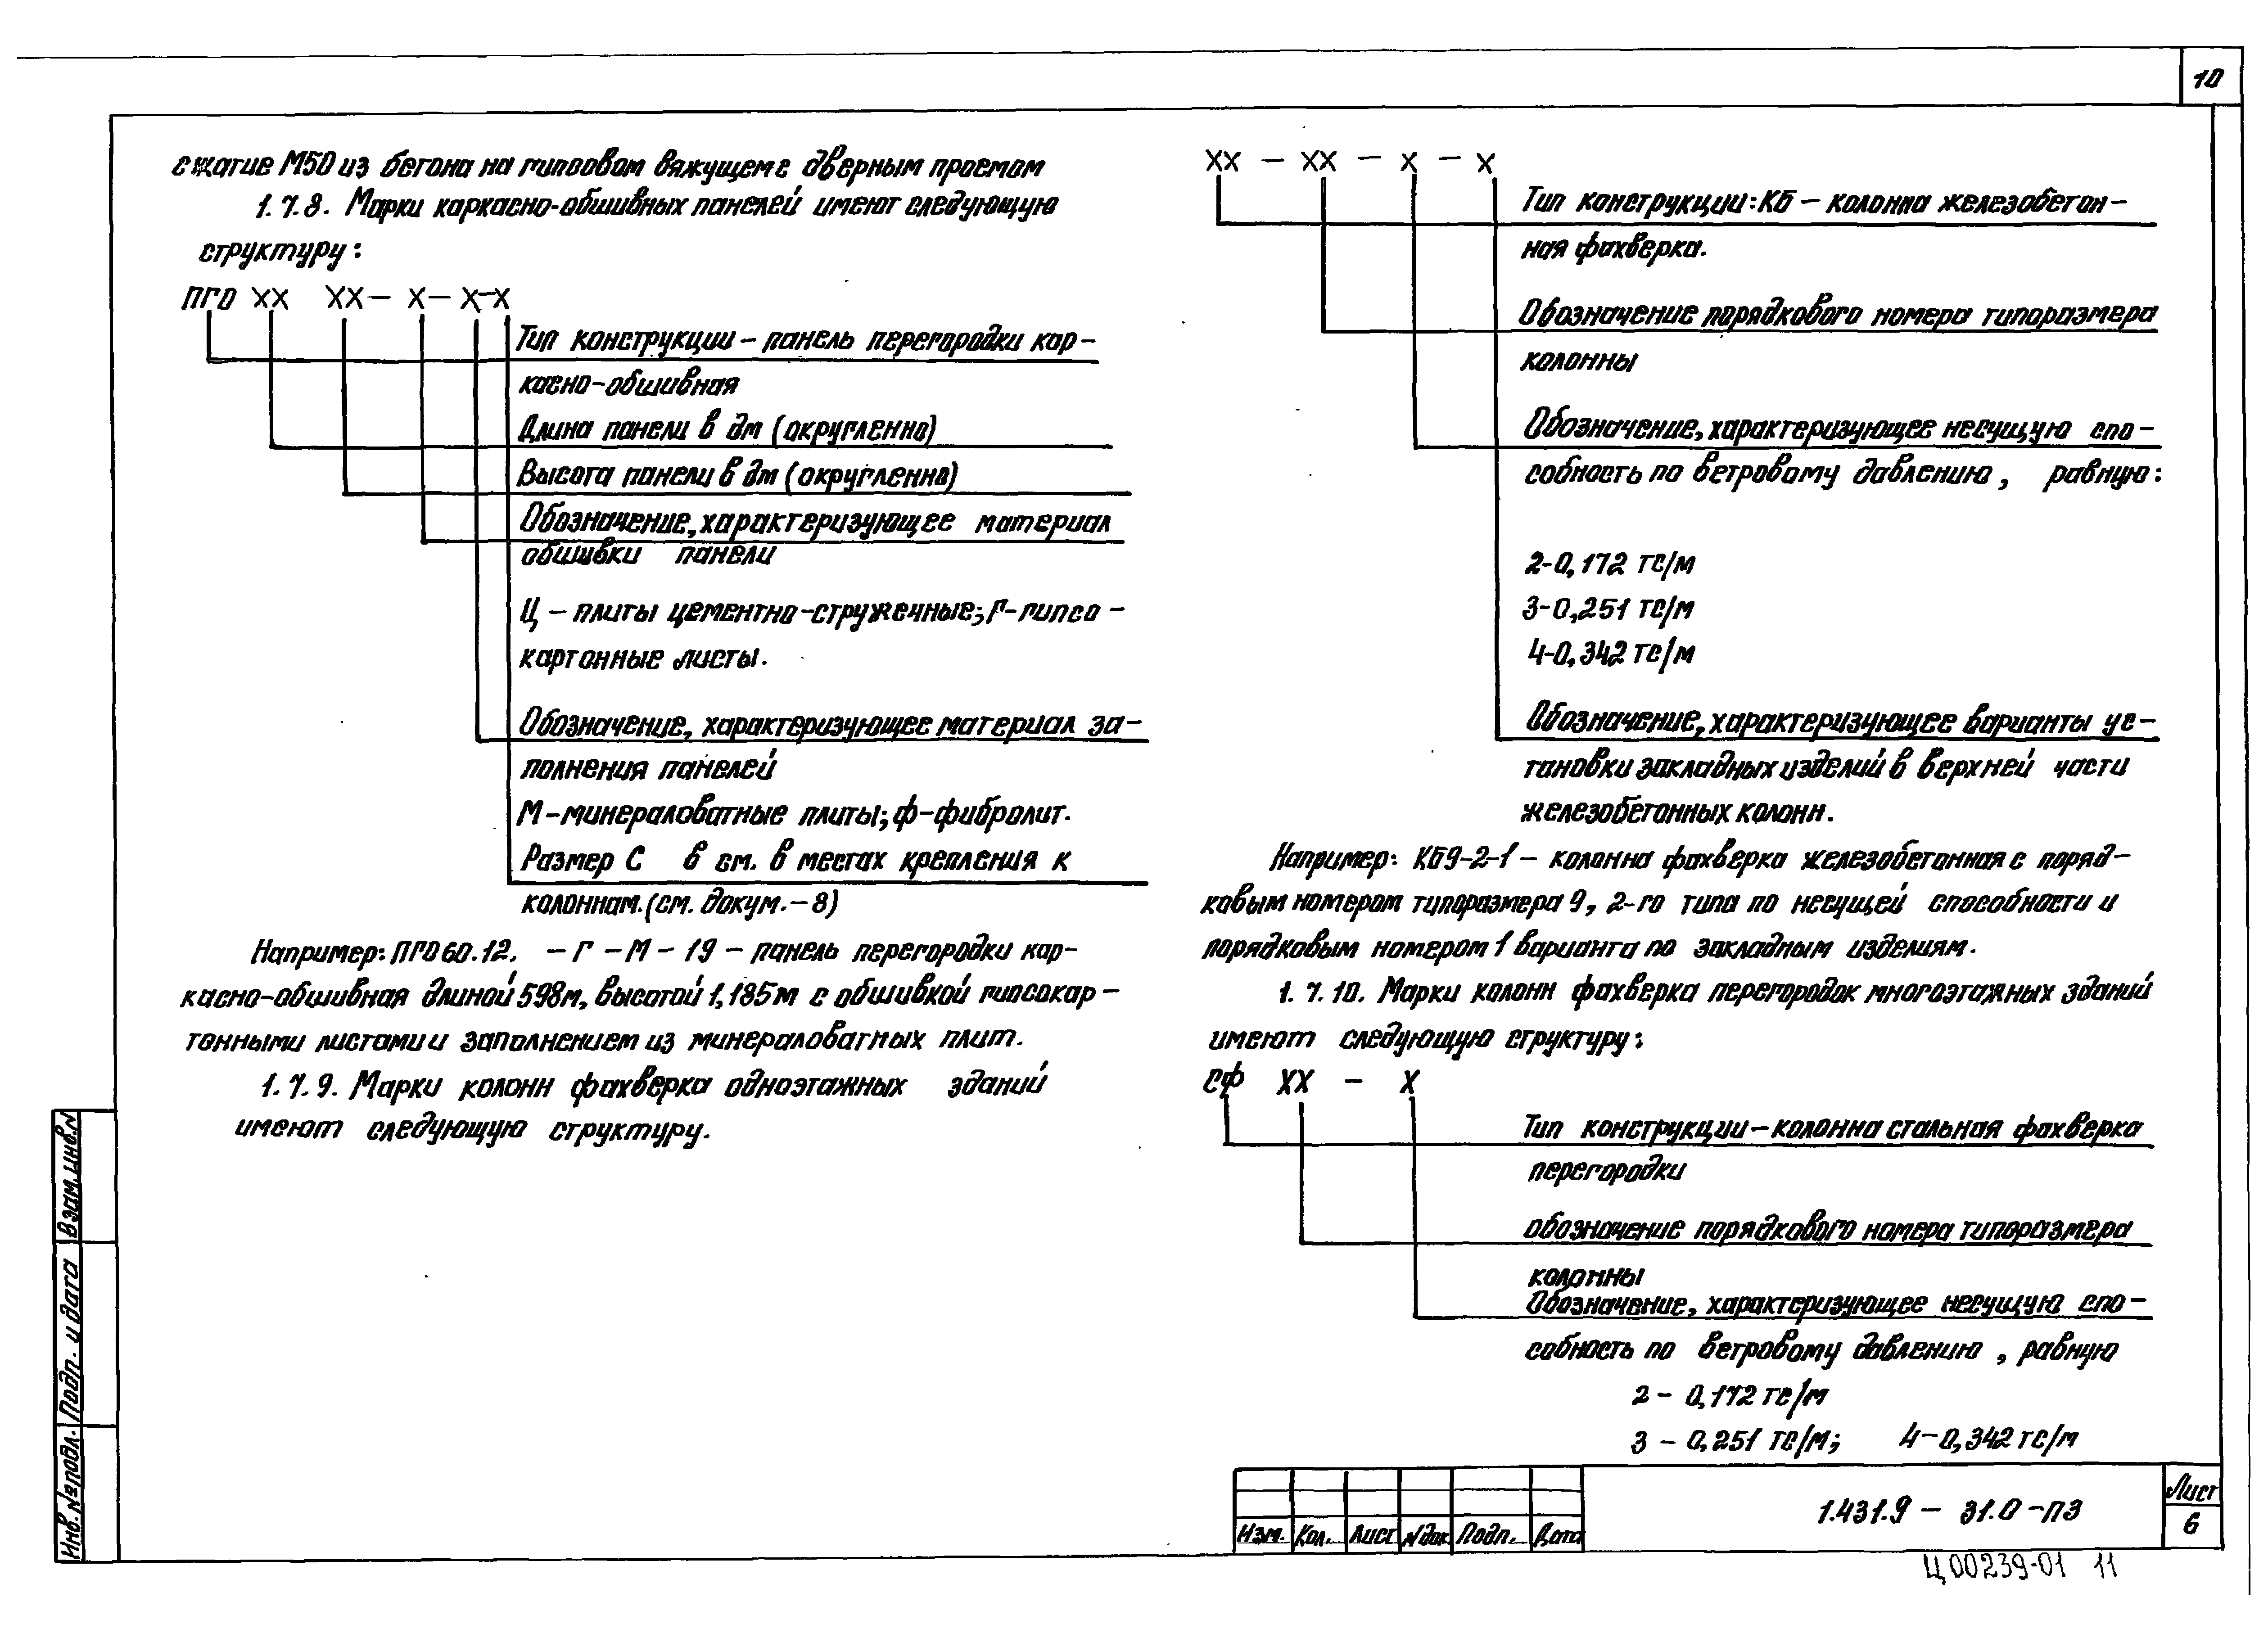 10
сжатие М50 из бетона на гипсовом вяжущем с дверным проемом
1.7.8. Марки каркасно-обшивных панелей имеют следующую
структуру:
ПГО ХХ ХХ – Х – Х – Х
Тип конструкции – панель перегородки кар-
касно-обшивная
Длина панели в дм (округленно)
Высота панели в дм (округленно)
Обозначение, характеризующее материал
обшивки панели
Ц – плиты цементно-стружечные; Г – гипсо-
картонные листы.
Обозначение, характеризующее материал за-
полнения панелей
М – минераловатные плиты; Ф – фибролит.
Размер С в см. в местах крепления к
колоннам. (см. докум. – 8)
Например: ПГО 60.12. – Г – М – 19 – панель перегородки кар-
касно-обшивная длиной 598м, высотой 1,185м с обшивкой гипсокар-
тонными листами и заполнением из минераловатных плит.
1.7.9. Марки колонн фахверка одноэтажных зданий
имеют следующую структуру.
ХХ – ХХ – Х – Х
Тип конструкции: КБ – колонна железобетон-
ная фахверка.
Обозначение порядкового номера типоразмера
колонны
Обозначение, характеризующее несущую спо-
собность по ветровому давлению, равную:
2 – 0,172 тс/м
3 – 0,251 тс/м
4 – 0,342 тс/м
Обозначение, характеризующее варианты ус-
тановки закладных изделий в верхней части
железобетонных колонн.
Например: КБ9-2-1 – колонна фахверка железобетонная с поряд-
ковым номером типоразмера 9, 2-го типа по несущей способности и
порядковым номером 1 варианта по закладным изделиям.
1.7.10. Марки колонн фахверка перегородок многоэтажных зданий
имеют следующую структуру:
СФ ХХ – Х
Тип конструкции – колонна стальная фахверка
перегородки
обозначение порядкового номера типоразмера
колонны
Обозначение, характеризующее несущую спо-
собность по ветровому давлению, равную
2 – 0,172 тс/м
3 – 0,251 тс/м; 4 – 0,342 тс/м
Взам. инв. N
Подп. и дата
Инв. № подл.
Изм. Кол. Лист N док. Подп. Дата
1.431.9 – 31.0 – ПЗ
Лист
6
Ц00239-01 11